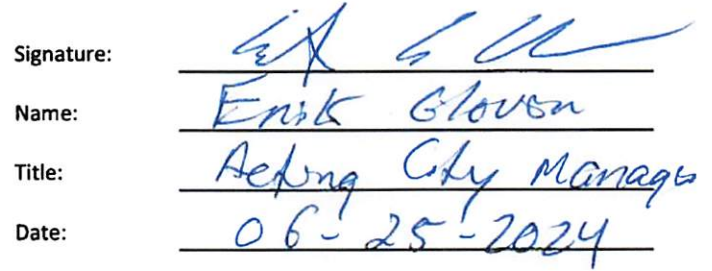 Signature:
Name: Erik Glover
Title: Acting City Manager
Date: 06-25-2024